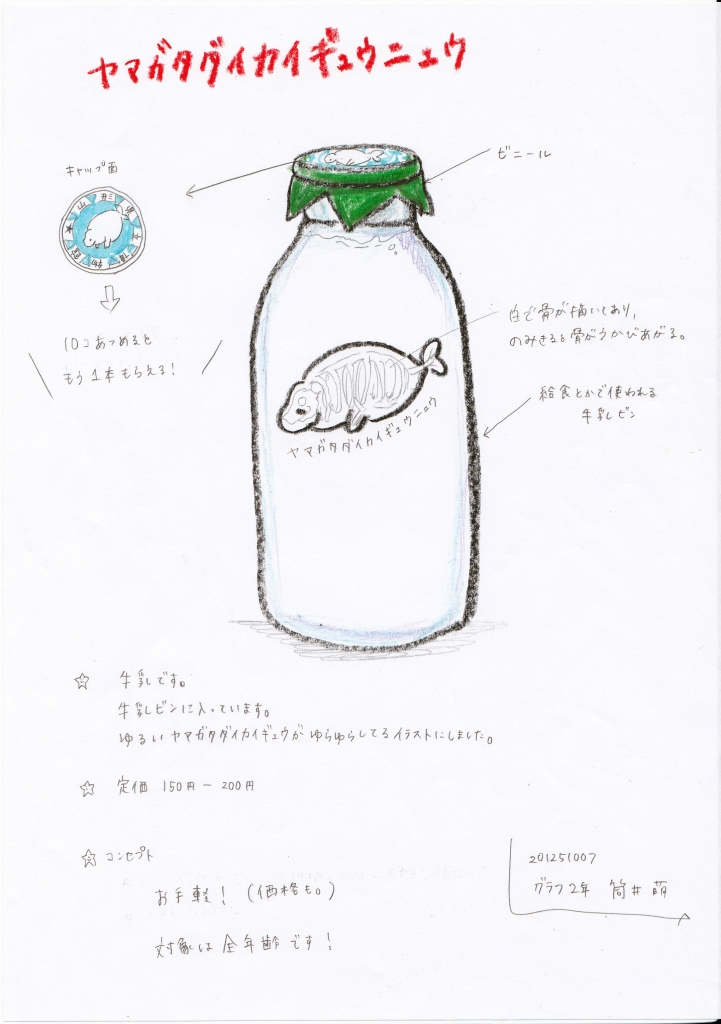 ヤマガタダイカイギュウニュウ
キャップ面
ビニール
山形県立博物館★
10コあつめると
もう1本もらえる!
白で骨が描いてあり、
のみきると骨がうかびあがる。
給食とかで使われる
牛乳ビン
ヤマガタダイカイギュウニュウ
☆ 牛乳です。
牛乳ビンに入っています。
ゆるいヤマガタダイカイギュウがゆらゆらしてるイラストにしました。
☆ 定価 150円－200円
☆ コンセプト
お手軽!(価格も。)
対象は全年齢です!
201251007
グラフ2年 筒井 萌